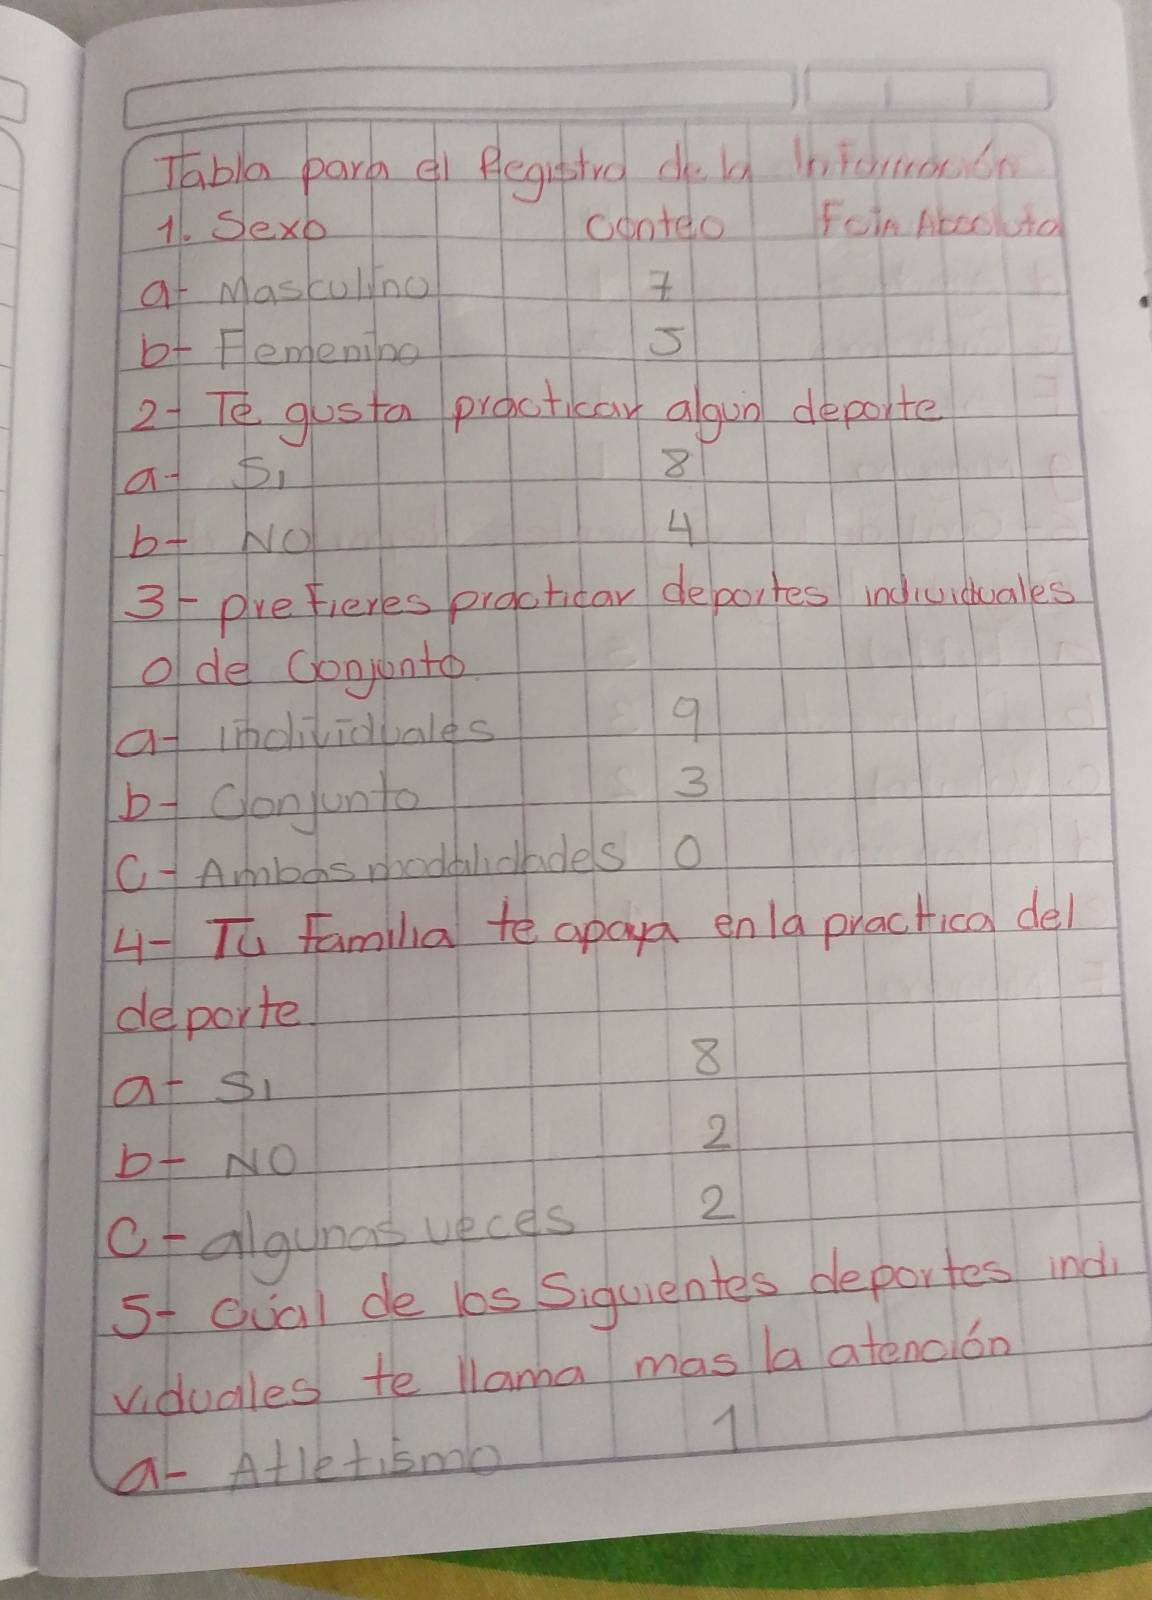 Tabla para el Registro de la Información
1. Sexo Conteo Fcin Absoluta
a- Masculino 7
b- Femenino 5
2- Te gusta practicar algun deporte
a- Si 8
b- NO 4
3- prefieres practicar deportes individuales
o de Conjunto
a- individuales 9
b- Conjunto 3
C- Ambas modalidades 0
4- Tu familia te apaya en la practica del
deporte
a- Si 8
b- NO 2
C- algunas veces 2
5- Cual de los Siguientes deportes indi
viduales te llama mas la atención
a- Atletismo 1